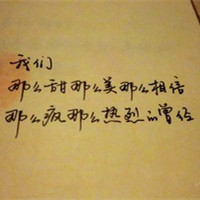 我们
那么甜那么美那么相信
那么疯那么热烈的曾经